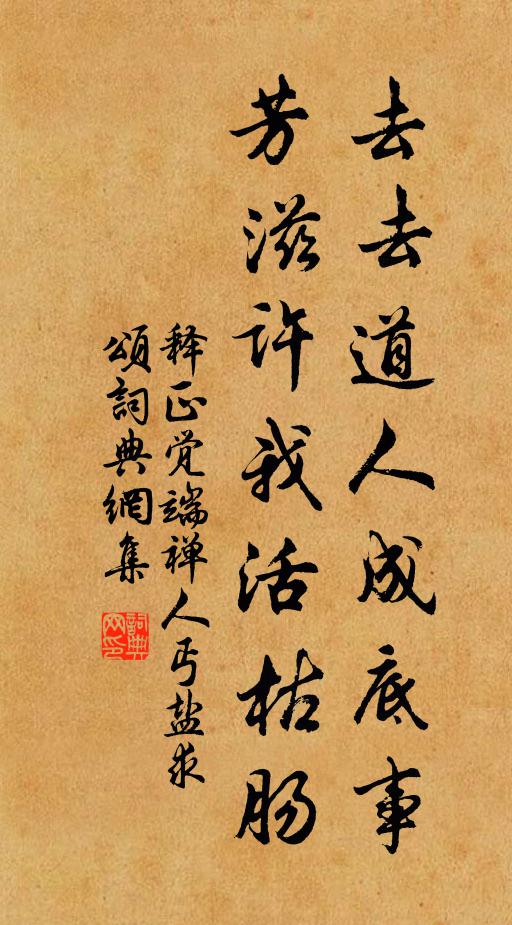 去去道人成底事
芳滋许我活枯肠
释正觉端禅人丐盐求
頌詞典網集
詞典网印